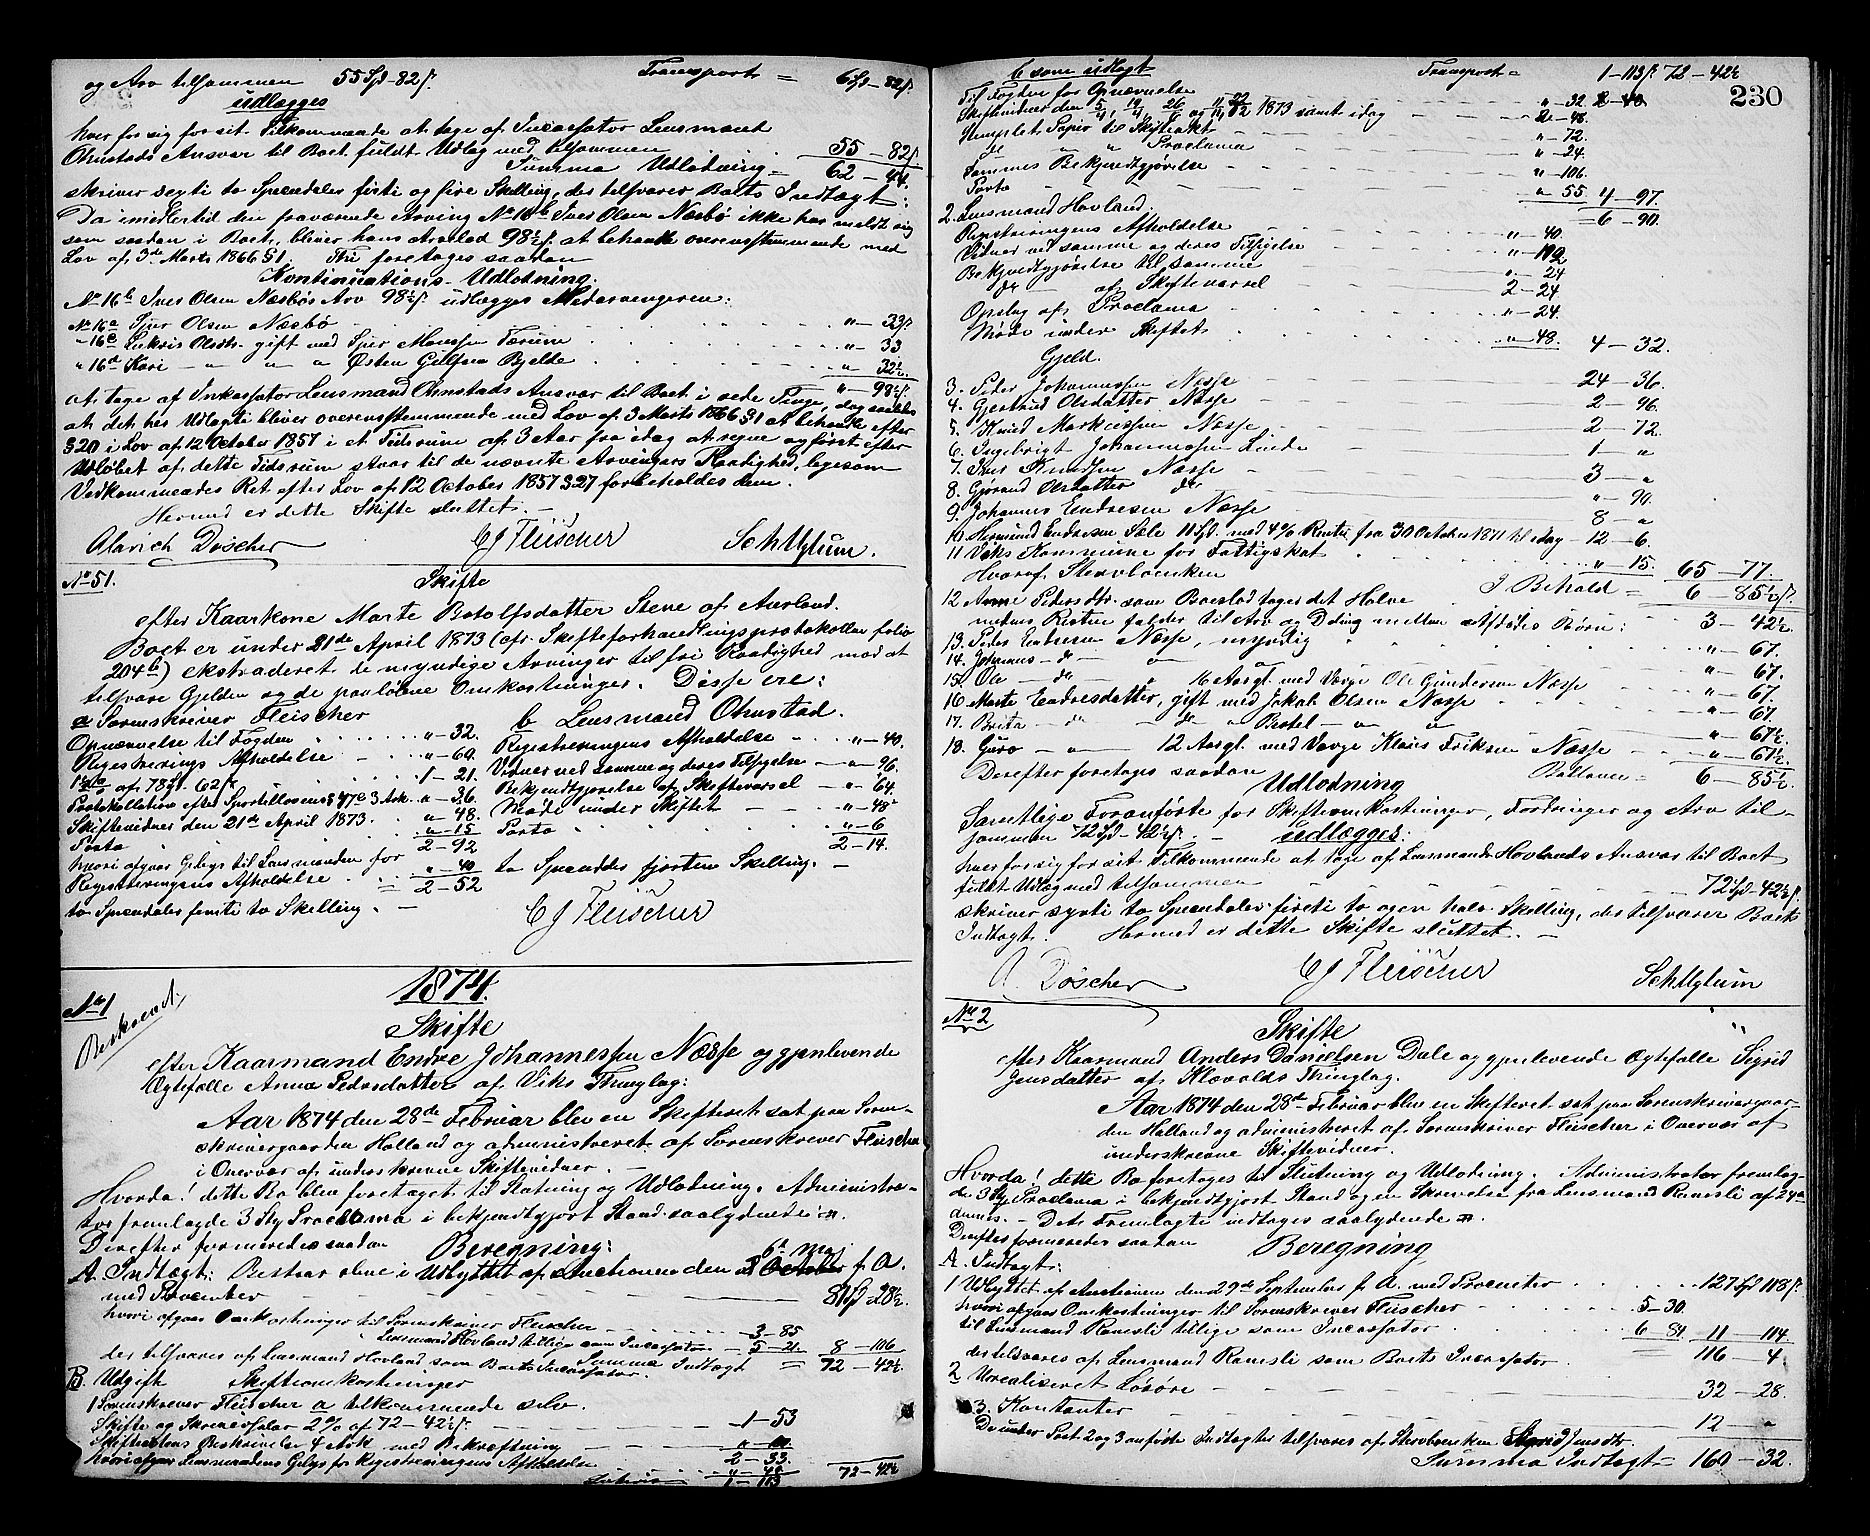 og Arv tilsammen 55 Spd - 82 s. Transport = 6 Spd - 82 s.
udlægges
hver for sig for sit Tilkommende at tage af Incassator Lensmand
Ohnstads Ansvar til Boet fuldt Udlæg med tilsammen 55 - 82 s.
Summa Udlodning = 62 - 44.
skriver segti to Speciedaler firti og fire Skilling, der tilsvarer Boets Indtægt:
Da imidlertid den fraværende Arving No 16 b Iver Olsen Næsbö ikke har meldt sig
som saadan i Boet, bliver hans Arvelod 98½ s. at behandle overensstemmende med
Lov af 3de Marts 1866 § 1. Thi foretages saadan
Kontinuations-Udlodning.
No 16 b Iver Olsen Næsbös Arv 98½ s. udlægges Medarvingerne:
No 16 a Sjur Olsen Næsbö " - 33 s.
" 16 c Lukris Olsdtr. gift med Sjur Monssen Færum " - 33
" 16 d Kari - " " Østen Gullsen Bjelde " - 32½.
" - 98½ s.
at tage af Inkassator Lensmand Ohnstads Ansvar til Boet i rede Penge, dog saaledes
at det her Udlagte bliver overensstemmende med Lov af 3 Marts 1866 § 1 at behandle efter
§ 20 i Lov af 12 October 1857 i et Tidsrum af 3 Aar fra idag at regne og först efter
Udlöbet af dette Tidsrum staar til de nævnte Arvingers Raadighed, ligesom
Vedkommendes Ret efter Lov af 12 October 1857 § 27 forbeholdes dem.
Hermed er dette Skifte sluttet. -
Alarich Döscher CJ Fleischer
No 51. Skifte
efter Kaarkone Marte Botolfsdatter Stene af Aurland.
Boet er under 21de April 1873 (cfr. Skifteforhandlingsprotokollen folio
204 b) ekstraderet de myndige Arvinger til fri Raadighed mod at
tilsvare Gjelden og de paalöbne Omkostninger. Disse ere:
a Sorenskriver Fleischer b Lensmand Ohnstad.
Opnævnelse til Fogden " - 32. Registreringens Afholdelse " - 40.
Registrerings Afholdelse " - 60. Vidner ved samme og deres Tilsigelse - " - 96.
af 78 Spd. 62 s. 1 - 21. Bekjendtgjörelse af Skiftevarsel - " - 64.
Protokollation efter Sportellovens § 47 c 3 Ark. " - 36. Möde under Skiftet - " - 48
Skiftevidner den 21de April 1873. " - 48. Porto " - 6
Porto " - 15 2 - 14.
2 - 92
hvori afgaar Gebyr til Lensmanden for to Speciedaler fjorten Skilling. -
Registreringens Afholdelse " - 40
= 2 - 52
to Speciedaler femti to Skilling. - CJ Fleischer
1874.
No 1 Skifte
Beskrevet.
efter Kaarmand Endre Johannessen Næsse og gjenlevende
Ægtefælle Anna Pedersdatter af Viks Thinglag:
Aar 1874 den 28de Februar blev en Skifteret sat paa Soren-
skrivergaarden Holland og administreret af Sorenskriver Fleischer
i Overvær af underskrevne Skiftevidner. -
Hvorda! dette Bo blev foretaget til Slutning og Udlodning. Administra-
tor fremlagde 3 Stkr Proclama i bekjendtgjort Stand saalydende:
Derefter formeredes saadan Beregning:
A. Indtægt: Bestaar alene i Udbyttet af Auctionen den 6te Mai f. A.
med Procenter 81 Spd - 28½.
hvori afgaar Omkostninger til Sorenskriver Fleischer 3 - 85
Lensmand Hovland tillige som Incassator 5 - 21. 8 - 106
der tilsvares af Lensmand Hovland som Boets Incassator. Summa Indtægt = 72 - 42½.
B. Udgift Skifteomkostninger
1 Sorenskriver Fleischer a tilkommende selv.
Skifte og Skriversalær 2% af 72 - 42½ s. 1 - 53
Skifteaktens Beskrivelse 4 Ark med Bekræftning
2 - 33.
hvori afgaar Lensmandens Gebyr for Registreringens Afholdelse " - 40
Lateris 1 - 113 72 - 42½
230
b som udlagt Transport = 1 - 113 s. 72 - 42½
Til Fogden for Opnævnelse " - 32.
Skiftevidner den 1873 samt idag 2 - 48.
Stemplet Papir til Skifteakt " - 72.
do " " Proclama " - 24.
Sammes Bekjendtgjörelse " - 106.
Porto " 55 4 - 97.
2. Lensmand Hovland. = 6 - 90.
Registreringens Afholdelse " - 40.
Vidner ved samme og deres Tilsigelse
Bekjendtgjörelse til samme " - 24
do - af Skiftevarsel 2 - 24
Opslag af Proclama " - 24.
Möde under Skiftet " - 48. 4 - 32.
Gjeld.
3. Peder Johannessen Næsse 24 - 36.
4. Gjertrud Olsdatter Næsse 2 - 96.
5. Knud Markussen Næsse 2 - 72.
6. Ingebrigt Johannessen Linde 1 - "
7. Iver Knudsen Næsse 3 - "
8. Gjörand Olsdatter do " - 90.
9. Johannes Endresen Næsse 8 - "
10. Hermund Endresen Sæle 11 Spd. med 4% Renter fra 30 October 1871 til idag - 12 - 6.
11 Viks Kommune for Fattigskat " - 15. 65 - 77
Hvoraf Stervboenken I Behold = 6 - 85½ s.
12 Anne Pedersdtr. som Boeslod tager det Halve 3 - 42½.
medens Resten falder til Arv og Deling mellem Afdödes Börn:
13. Peder Endresen Næsse, myndig " - 67.
14. Johannes - do - " " " - 67.
15. Ole - do - 16 Aar gl. med Værge Ole Gundersen Næsse " - 67.
16 Marte Endresdatter, gift med Jakob Olsen Næsse " - 67
17. Brita - do - do " Bertel - " - " " - 67½.
18. Guro - " - 12 Aar gl. med Værge Klaus Eriksen Næsse " - 67½.
Derefter foretoges saadan Ballance = 6 - 85½.
Udlodning
Samtlige Foranförte for Skifteomkostninger, Fordringer og Arv til-
sammen 72 Spd - 42½ s. udlægges:
hver for sig for sit Tilkommende at tage af Lensmand Hovlands Ansvar til Boet
fuldt Udlæg med tilsammen 72 Spd - 42½ s.
skriver sytti to Speciedaler firti to og en halv Skilling, der tilsvarer Boets
Indtægt. Hermed er dette Skifte sluttet. -
A. Döscher CJ Fleischer
No 2 Skifte
efter Kaarmand Anders Danielsen Dale og gjenlevende Ægtefælle Sigrid
Jensdatter af Klævolds Thinglag.
Aar 1874 den 28de Februar blev en Skifteret sat paa Sorenskrivergaar-
den Holland og administreret af Sorenskriver Fleischer i Overvær af
underskrevne Skiftevidner.
Hvorda! dette Bo foretoges til Slutning og Udlodning. Administrator fremlag-
de 3 Stkr Proclama i bekjendtgjort Stand og en Skrivelse fra Lensmand Ramsli af 24de
dennes. - Det Fremlagte indtages saalydende
Derefter formeredes saadan Beregning
A. Indtægt:
1 Udbyttet af Auctionen den 29de September f. A. med Procenter 127 Spd 118 s.
hvori afgaar Omkostninger til Sorenskriver Fleischer 5 - 30.
til Lensmand Ramsli tillige som Incassator 6 - 84 11 - 114
der tilsvares af Lensmand Ramsli som Boets Incassator. 116 - 4
2 Urealiseret Lösöre 32 - 28.
3. Kontanter 12 - "
De under Post 2 og 3 anförte Indtægter tilsvares af Stervboenken Sigrid Jensdtr.
Summa Indtægt = 160 - 32.